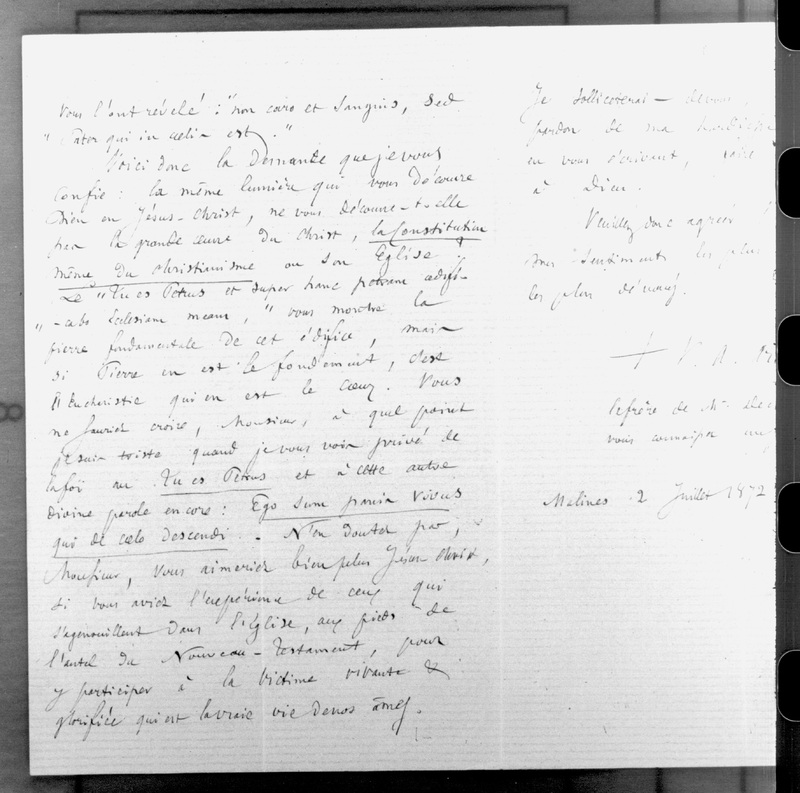 vous l'ont révélé : "non caro et sanguis, sed
" Pater qui in cœlis est."
Voici donc la demande que je vous
confie : la même lumière qui vous découvre
Dieu en Jésus-Christ, ne vous découvre-t-elle
pas la grande œuvre du Christ, la Constitution
même du christianisme ou son Eglise ?
Le "Tu es Petrus et super hanc petram ædifi-
"-cabo Ecclesiam meam," vous montre la
pierre fondamentale de cet édifice, mais
si Pierre en est le fondement, c'est
l'Eucharistie qui en est le cœur. Vous
ne sauriez croire, Monsieur, à quel point
je suis triste quand je vous vois privé de
la foi au Tu es Petrus et à cette autre
divine parole encore : Ego sum panis vivus
qui de cœlo descendi. - N'en doutez pas,
Monsieur, vous aimeriez bien plus Jésus Christ,
si vous aviez l'expérience de ceux qui
s'agenouillent dans l'Eglise, aux pieds de
l'autel du Nouveau-Testament, pour
y participer à la Victime vivante &
glorifiée qui est la vraie vie de nos âmes.
Je solliciterai
pardon de ma hardiesse
en vous écrivant, voire
à Dieu.
Veuillez donc agréer
mes sentiments les plus
les plus dévoués.
+ V. A.
le frère de Mr
vous connaissez
Malines 2 Juillet 1872